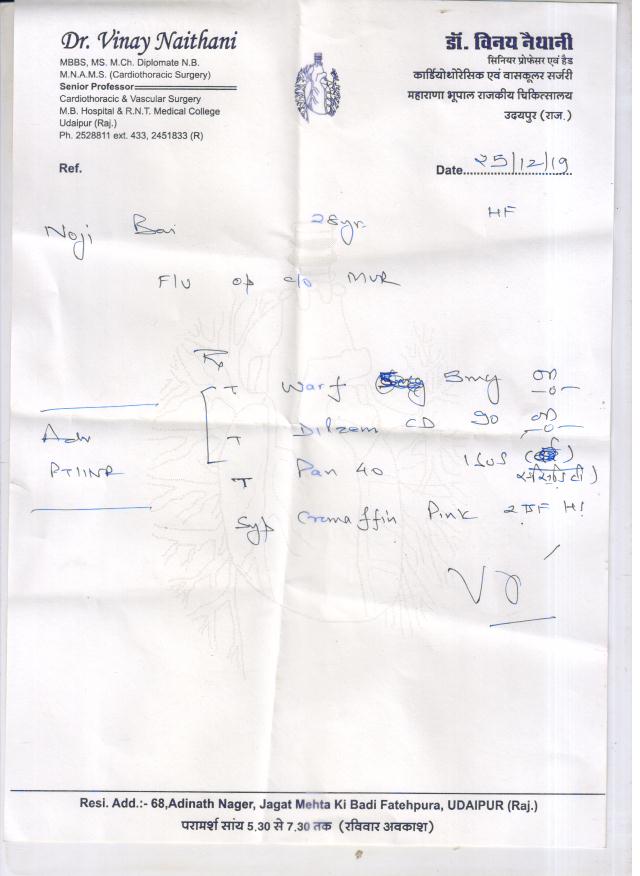 Dr. Vinay Naithani
MBBS, MS. M.Ch. Diplomate N.B.
M.N.A.M.S. (Cardiothoracic Surgery)
Senior Professor
Cardiothoracic & Vascular Surgery
M.B. Hospital & R.N.T. Medical College
Udaipur (Raj.)
Ph. 2528811 ext. 433, 2451833 (R)
डॉ. विनय नैथानी
सिनियर प्रोफेसर एवं हैड
कार्डियोथोरेसिक एवं वासकूलर सर्जरी
महाराणा भूपाल राजकीय चिकित्सालय
उदयपुर (राज.)
Ref.
Date 25/12/19
Noji Bai 28yr. HF
F/U op c/o MVR
Rx
T Warf 5mg OD
T Dilzem CD 90 OD
T Pan 40 1 SOS
Adv
PT/INR
Syp Cremaffin Pink 2 TSF HS
Resi. Add.:- 68,Adinath Nager, Jagat Mehta Ki Badi Fatehpura, UDAIPUR (Raj.)
परामर्श सांय 5.30 से 7.30 तक (रविवार अवकाश)